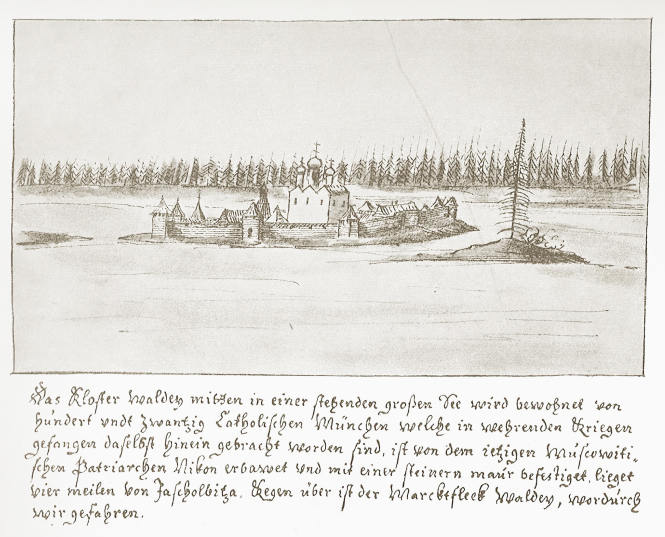 Das Kloster Waldey mitten in einer stehenden großen See wird bewohnet von
hundert undt zwantzig Catholischen München welche in wehrenden Kriegen
gefangen daselbst hinein gebracht worden sind, ist von dem ietzigen Muscowiti-
schen Patriarchen Nikon erbawet und mit einer steinern maur befestiget, lieget
vier meilen von Jascholbitza. Kegen über ist der Marcktfleck Waldey, wordurch
wir gefahren.